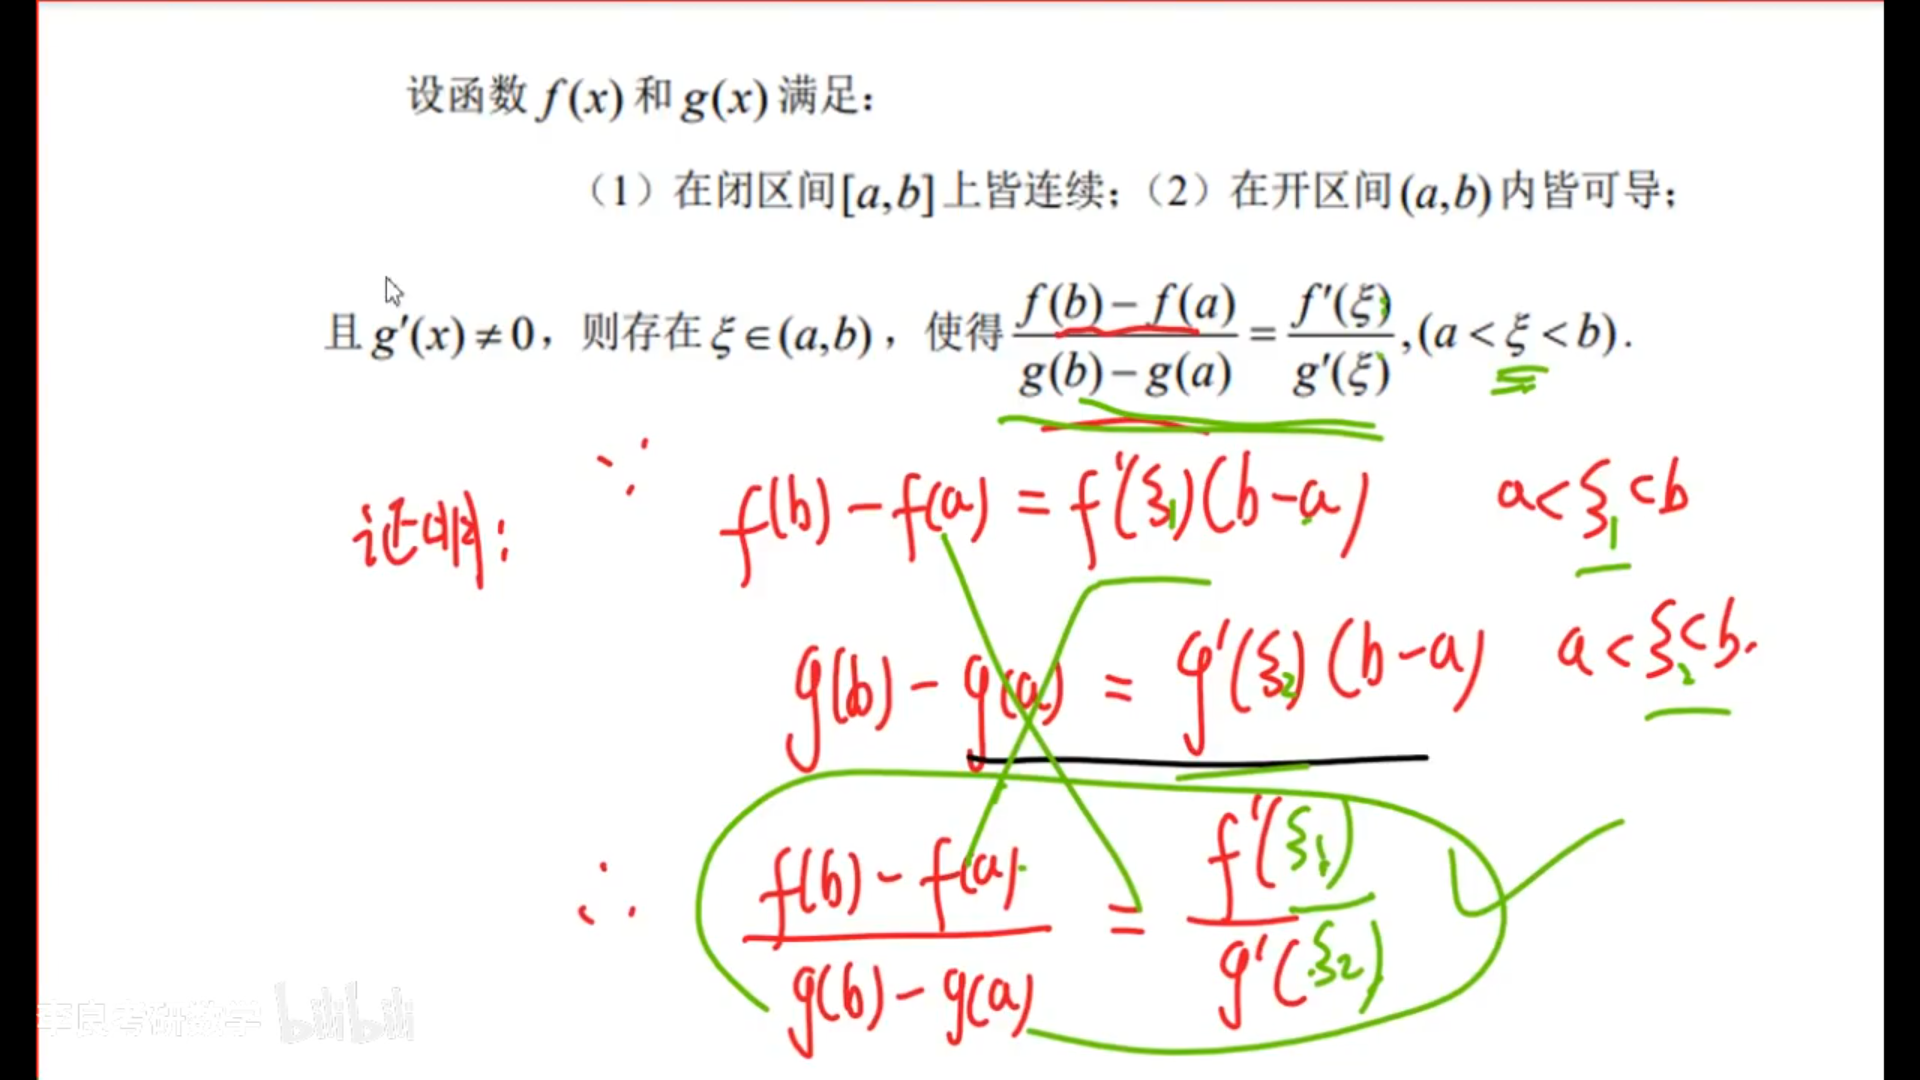 设函数 f(x) 和 g(x) 满足：
（1）在闭区间[a,b]上皆连续；（2）在开区间(a,b)内皆可导；
且 g′(x)≠0，则存在 ξ∈(a,b)，使得 \frac{f(b)-f(a)}{g(b)-g(a)} = \frac{f′(ξ)}{g′(ξ)},(a<ξ<b).
证明: ∵ f(b)-f(a) = f′(ξ₁)(b-a) a<ξ₁<b
g(b)-g(a) = g′(ξ₂)(b-a) a<ξ₂<b.
∴ \frac{f(b)-f(a)}{g(b)-g(a)} = \frac{f′(ξ₁)}{g′(ξ₂)}
李良考研数学 bilibili